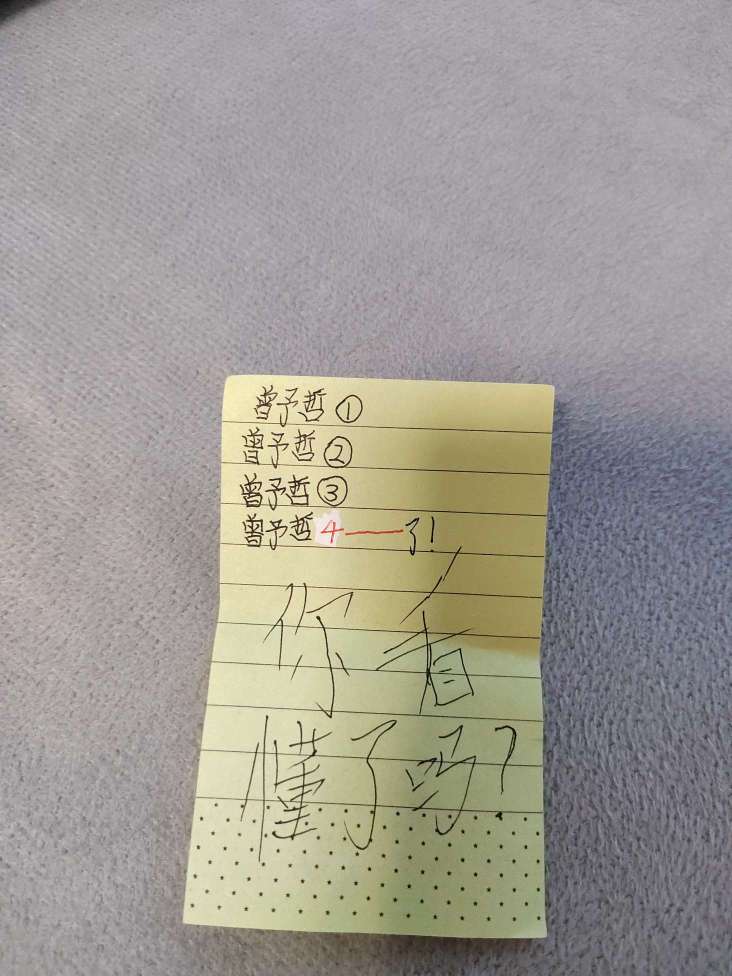 曾予哲①
曾予哲②
曾予哲③
曾予哲4——了!
你看
懂了吗?